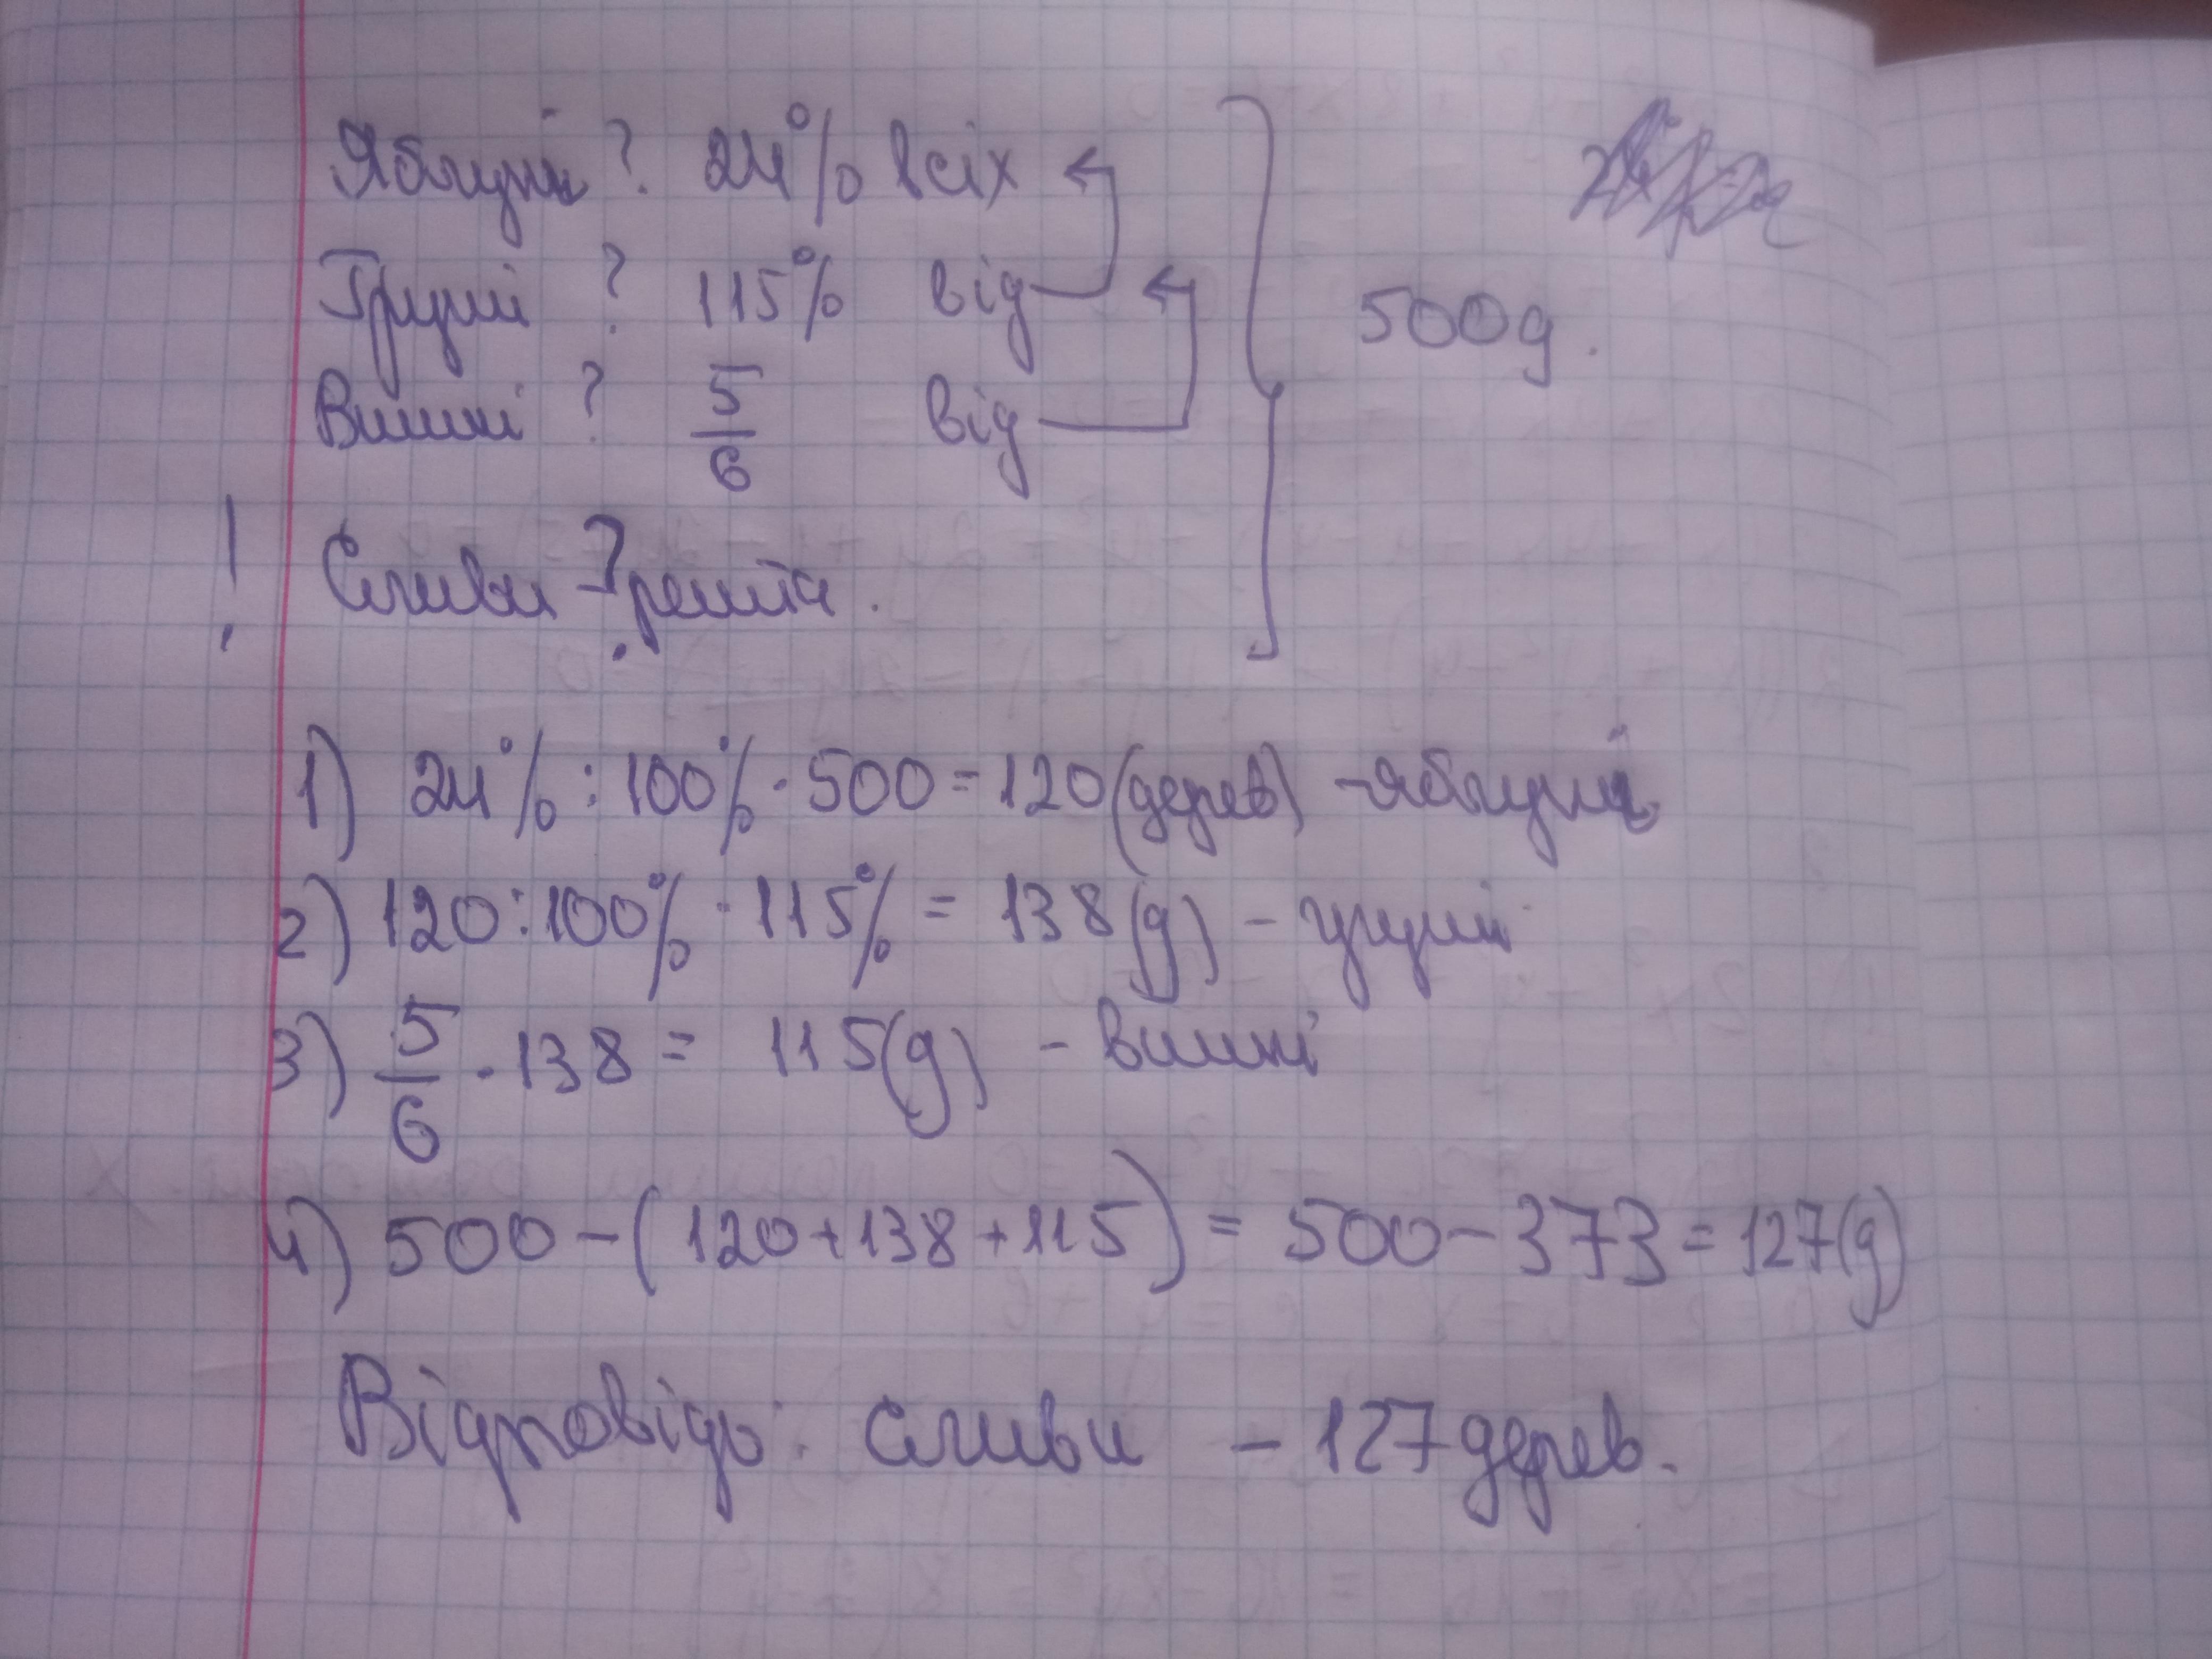 Яблуні ? 24% всіх
Груші ? 115% від
500д.
Вишні ? 5/6 від
! Сливи - ? решта.
1) 24% : 100% · 500 = 120 (дерев) - яблуні
2) 120 : 100% · 115% = 138 (д) - груші
3) 5/6 · 138 = 115 (д) - вишні
4) 500 - (120 + 138 + 115) = 500 - 373 = 127 (д)
Відповідь: сливи - 127 дерев.